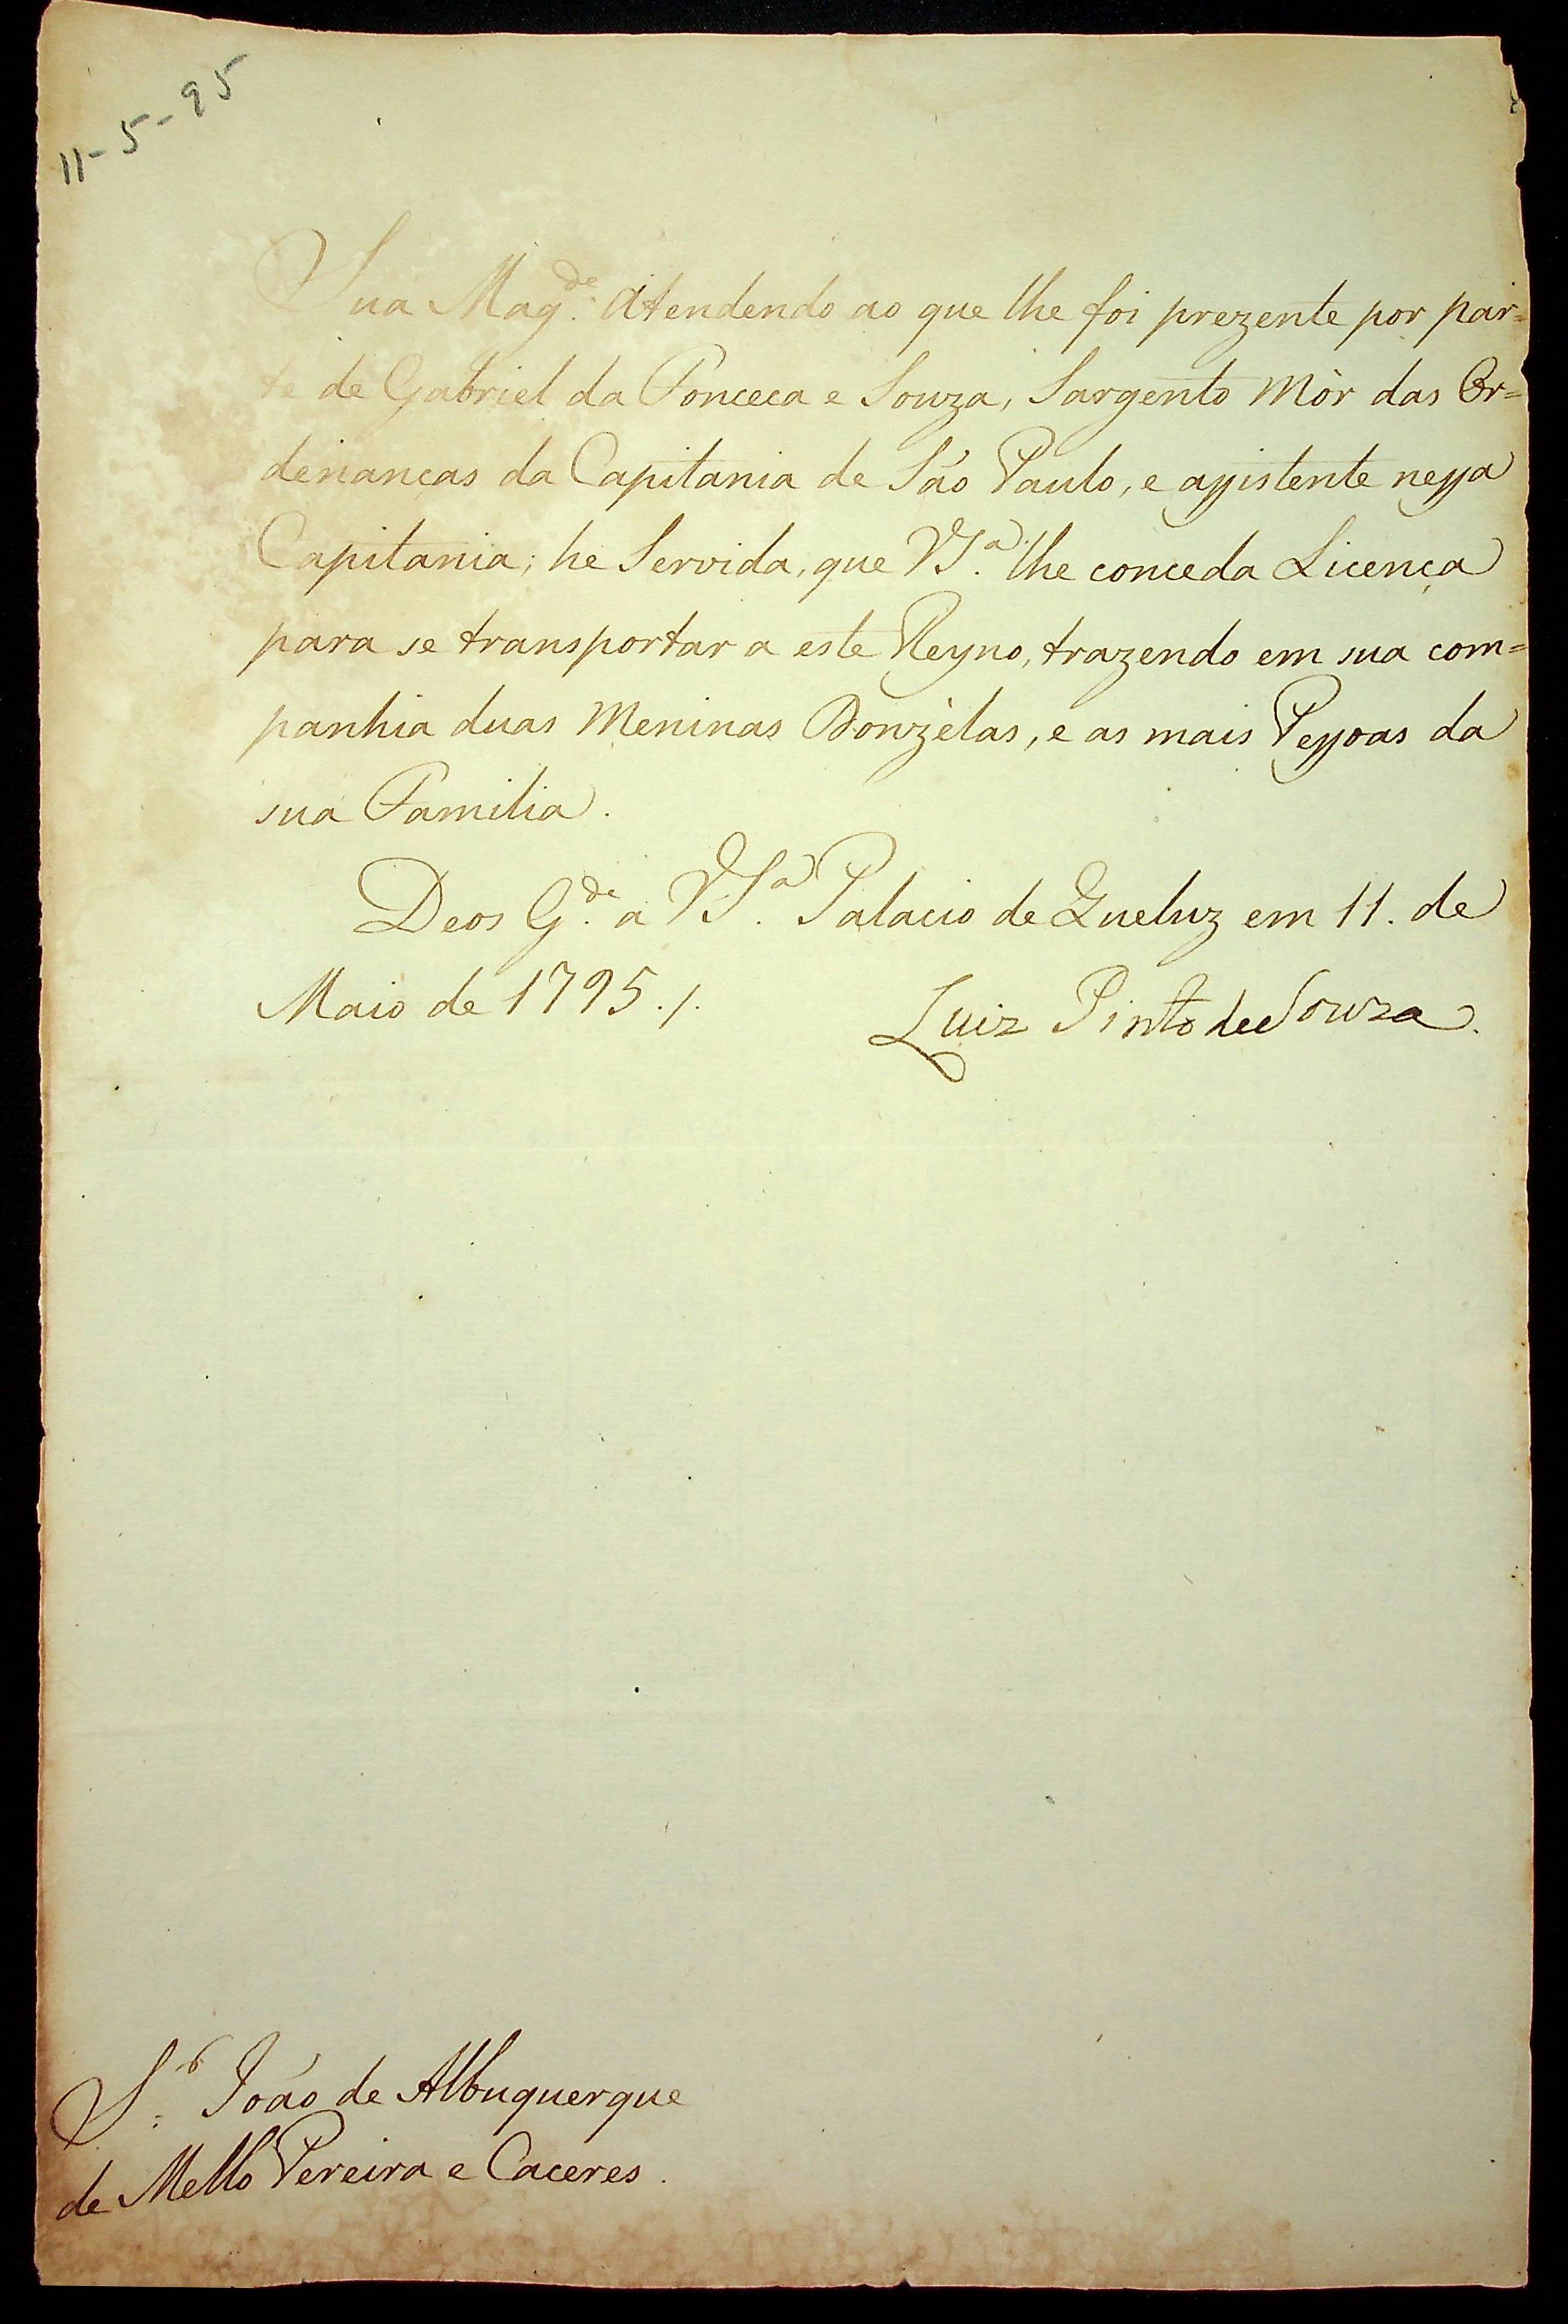 11-5-95
Sua Mag.de Atendendo ao que lhe foi prezente por par=
te de Gabriel da Fonceca e Souza, Sargento Mòr das Or=
denanças da Capitania de São Paulo, e assistente nessa
Capitania; he Servida, que V.S.a lhe conceda Licença
para se transportar a este Reyno, trazendo em sua com=
panhia duas Meninas Donzèlas, e as mais Pessoas da
sua Familia.
Deos G.de a V.S.a Palacio de Queluz em 11. de
Maio de 1795./.
Luiz Pinto de Souza.
S.r João de Albuquerque
de Mello Pereira e Caceres.